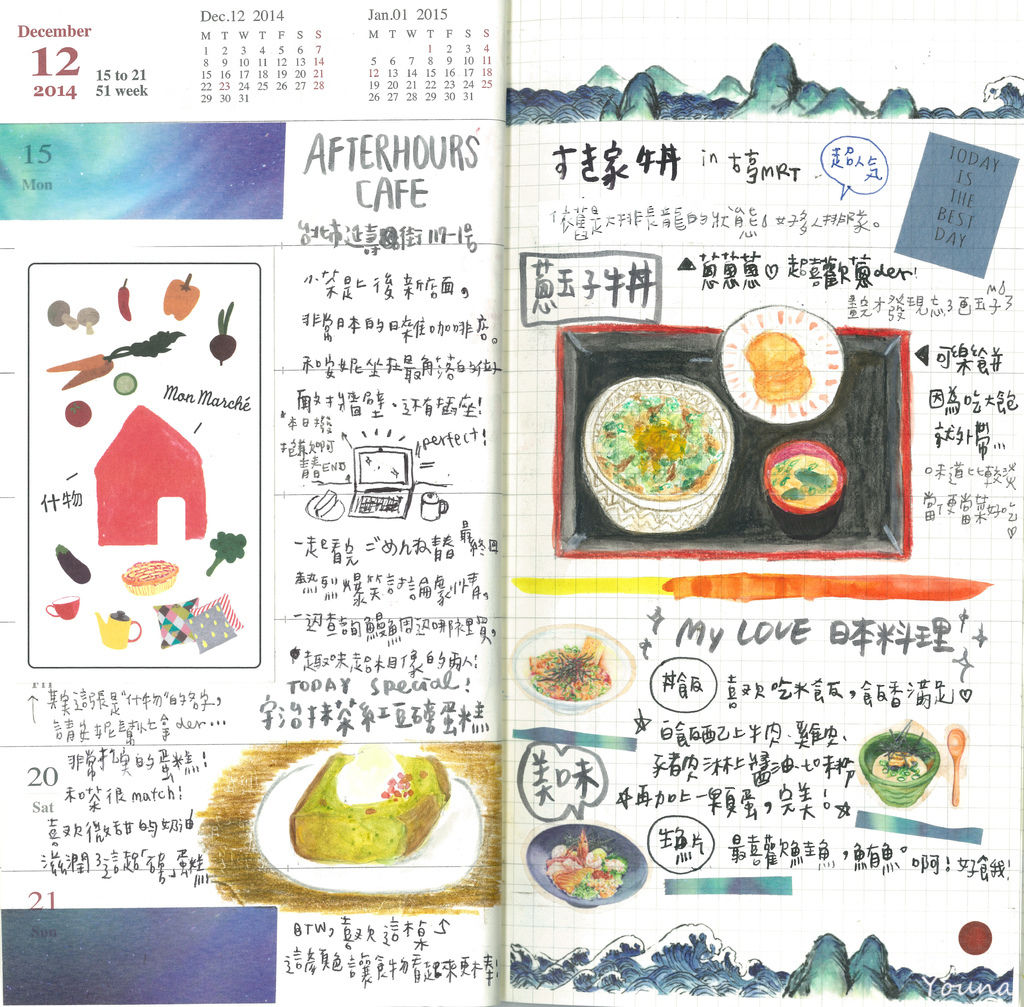 December
12
2014
15 to 21
51 week
Dec.12 2014
M T W T F S S
1 2 3 4 5 6 7
8 9 10 11 12 13 14
15 16 17 18 19 20 21
22 23 24 25 26 27 28
29 30 31
Jan.01 2015
M T W T F S S
1 2 3 4
5 6 7 8 9 10 11
12 13 14 15 16 17 18
19 20 21 22 23 24 25
26 27 28 29 30 31
15
Mon
AFTERHOURS
CAFE
台北市延壽街117-1号
小茶是上後新店面,
非常日本的日雜咖啡店。
和安妮坐在最角落的位
面牆壁、還有插座!
本日撥
青春END
perfect!
Mon Marché
什物
一起看完 ごめんね青春 最終回
熱烈爆笑討論劇情。
一邊查詢鰻魚周边哪裡買,
趣味超相像的兩人!
TODAY special!
宇治抹茶紅豆磅蛋糕
↑ 其實這張是"什物"的名字,
請安妮幫忙拿der...
非常扎實的蛋糕!
和茶很match!
喜欢微甜的奶油
滋潤了這起「磅」蛋糕
20
Sat
21
Sun
BTW, 喜欢這桌
這顏色讓食物看起來更棒!
すき家 牛丼 in 古亭MRT
超人気
依舊是大排長龍的狀態!好多人排隊。
TODAY
IS
THE
BEST
DAY
蔥玉子牛丼
▲ 蔥蔥蔥♡ 超喜歡蔥der!
畫完才發現忘了画玉子了
◀ 可樂餅
因為吃太飽
就外帶...
味道比較淡
當便當菜好吃♡
My LOVE 日本料理
丼飯
喜欢吃米飯,飯香滿足♡
☆ 白飯配上牛肉、雞肉、
豬肉淋上醬油、七味粉
再加上一顆蛋,完美!☆
美味
生魚片
最喜歡鮭魚,鮪魚。啊!好餓!
Youna